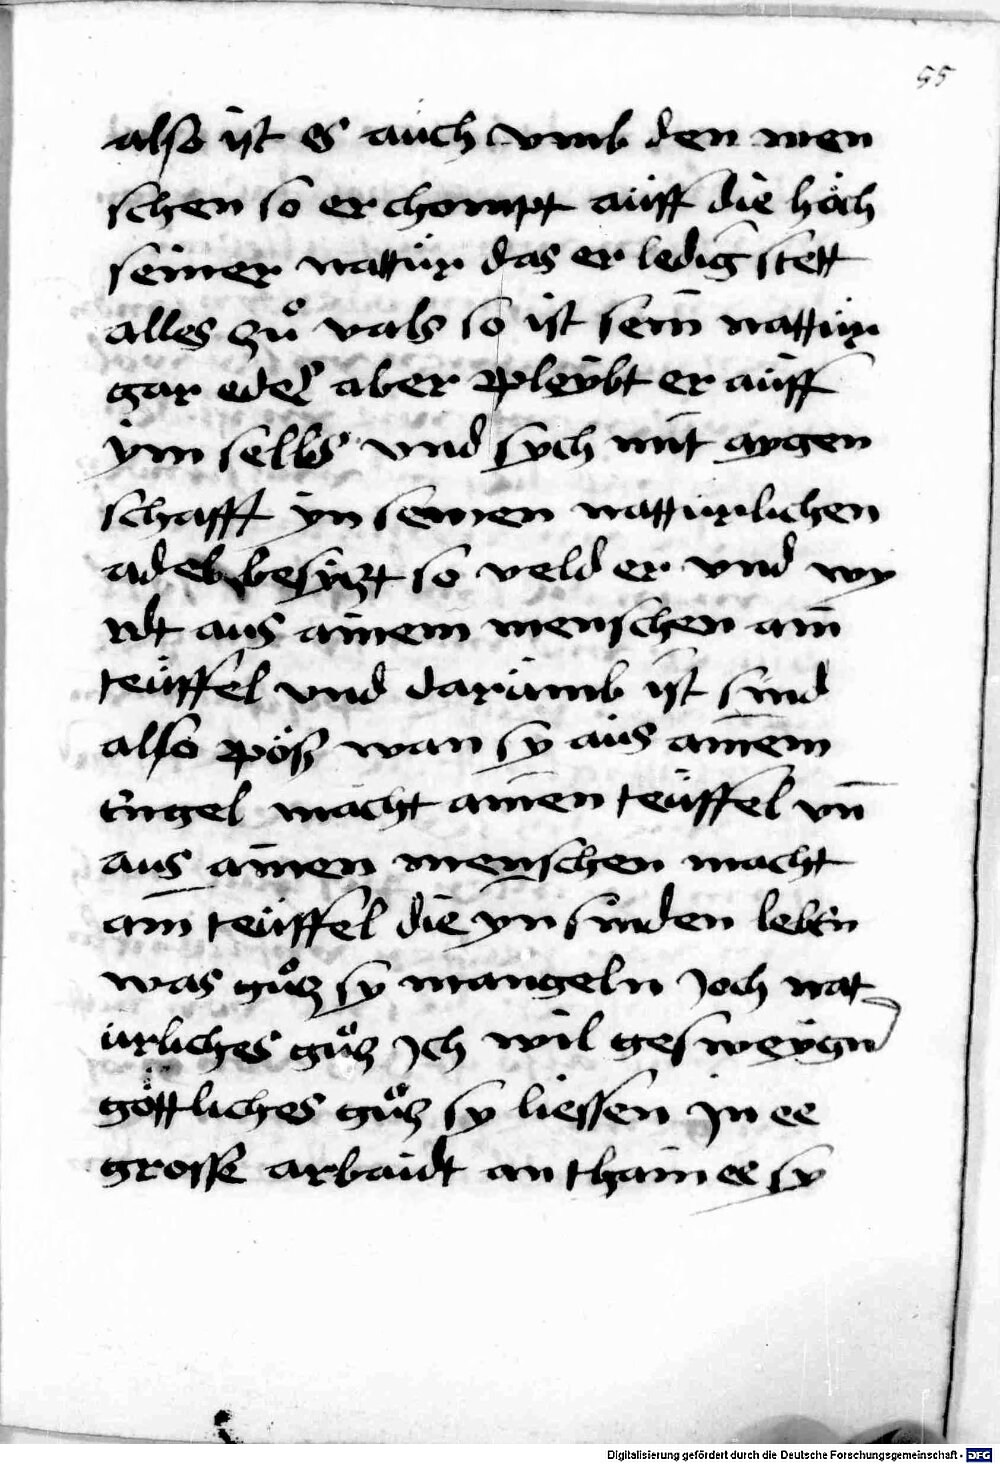 55
also ist es auch vmb den men
schen so er chompt auff die höch
seiner nattur das er ledig stett
alles zuͦ vals so ist sein nattur
gar edel aber pleybt er auff
ym selbs vnd sych mit aygen
schafft yn seinen natturlichen
adel besyzt so veld er vnd wy
rdt aus ainem menschen ain
teuffel vnd darumb ist sund
also pöß wan sy aus ainem
Engel macht ainen teuffel vn̄
aus ainen menschen macht
ain teuffel die yn sunden leben
was guͦtz sy mangeln Joch nat
urliches guͦtz Jch wil gesweygn
göttliches guͦtz sy liessen Jn ee
grosse arbaidt an thain ee sy
Digitalisierung gefördert durch die Deutsche Forschungsgemeinschaft - DFG